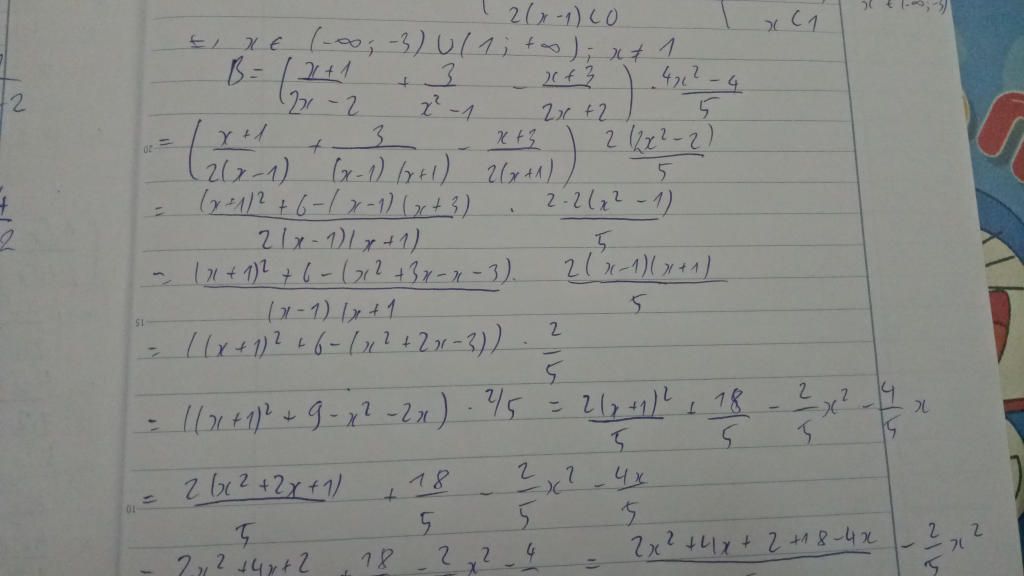 2(x-1) < 0 x < 1 x ∈ (-∞; -3)
⇔ x ∈ (-∞; -3) ∪ (1; +∞); x ≠ 1
B = ( (x+1)/(2x-2) + 3/(x²-1) - (x+3)/(2x+2) ) · (4x²-4)/5
= ( (x+1)/(2(x-1)) + 3/((x-1)(x+1)) - (x+3)/(2(x+1)) ) 2(2x²-2)/5
= ((x+1)² + 6 - (x-1)(x+3))/(2(x-1)(x+1)) · 2·2(x²-1)/5
= ((x+1)² + 6 - (x²+3x-x-3))/((x-1)(x+1) · 2(x-1)(x+1)/5
= ((x+1)² + 6 - (x²+2x-3)) · 2/5
= ((x+1)² + 9 - x² - 2x) · 2/5 = 2(x+1)²/5 + 18/5 - 2/5 x² - 4/5 x
= 2(x²+2x+1)/5 + 18/5 - 2/5 x² - 4x/5
= 2x²+4x+2 + 18 - 2 x² - 4 = 2x²+4x+2+18-4x - 2/5 x²